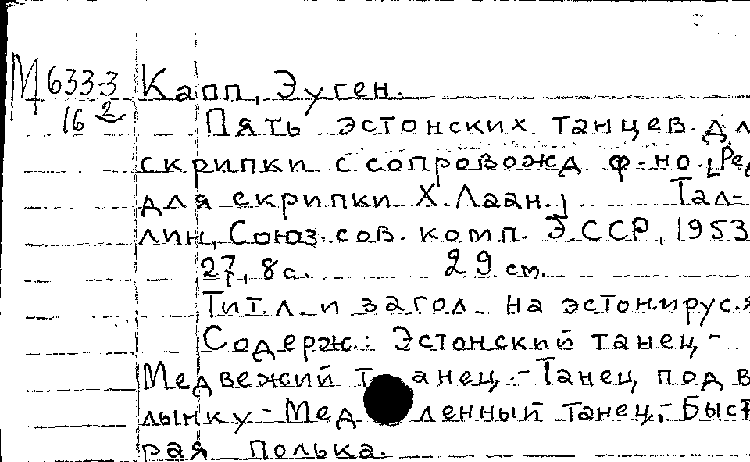 М 633-3 Капп, Эуген.
16 2 Пять эстонских танцев для
скрипки с сопровожд ф-но. [Ред
для скрипки Х. Лаан.] Тал-
лин, Союз. сов. комп. Э.ССР, 1953
27, 8 с. 29 см.
Тит. л. и загол на эстон.и рус.я
Содерж.: Эстонский танец,-
Медвежий танец.- Танец под во
лынку - Медленный танец,- Быст
рая полька.